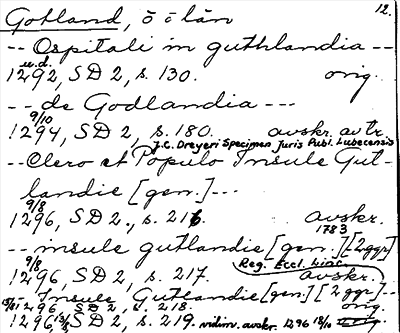 Gotland, ö o län 12.
-- Ospitali in guthlandia --
u.d.
1292, SD 2, s. 130. orig.
-- de Godlandia ---
9/10
1294, SD 2, s. 180. avskr. av tr.
J.C. Dreyeri Specimen Juris Publ. Lubecensis
-- Clero et Populo Insule Gut-
landie [gen.]--
9/8
1296, SD 2, s. 216. avskr.
1783
-- insule gutlandie [gen.] [2 ggr]
9/8 Reg. Eccl. Linc.
1296, SD 2, s. 217. avskr.
-- Insule Gutlandie [gen.] [2 ggr] --
1296, SD 2, s. 218. orig.
1296, SD 2, s. 219. vidim. avskr. 1296 18/10